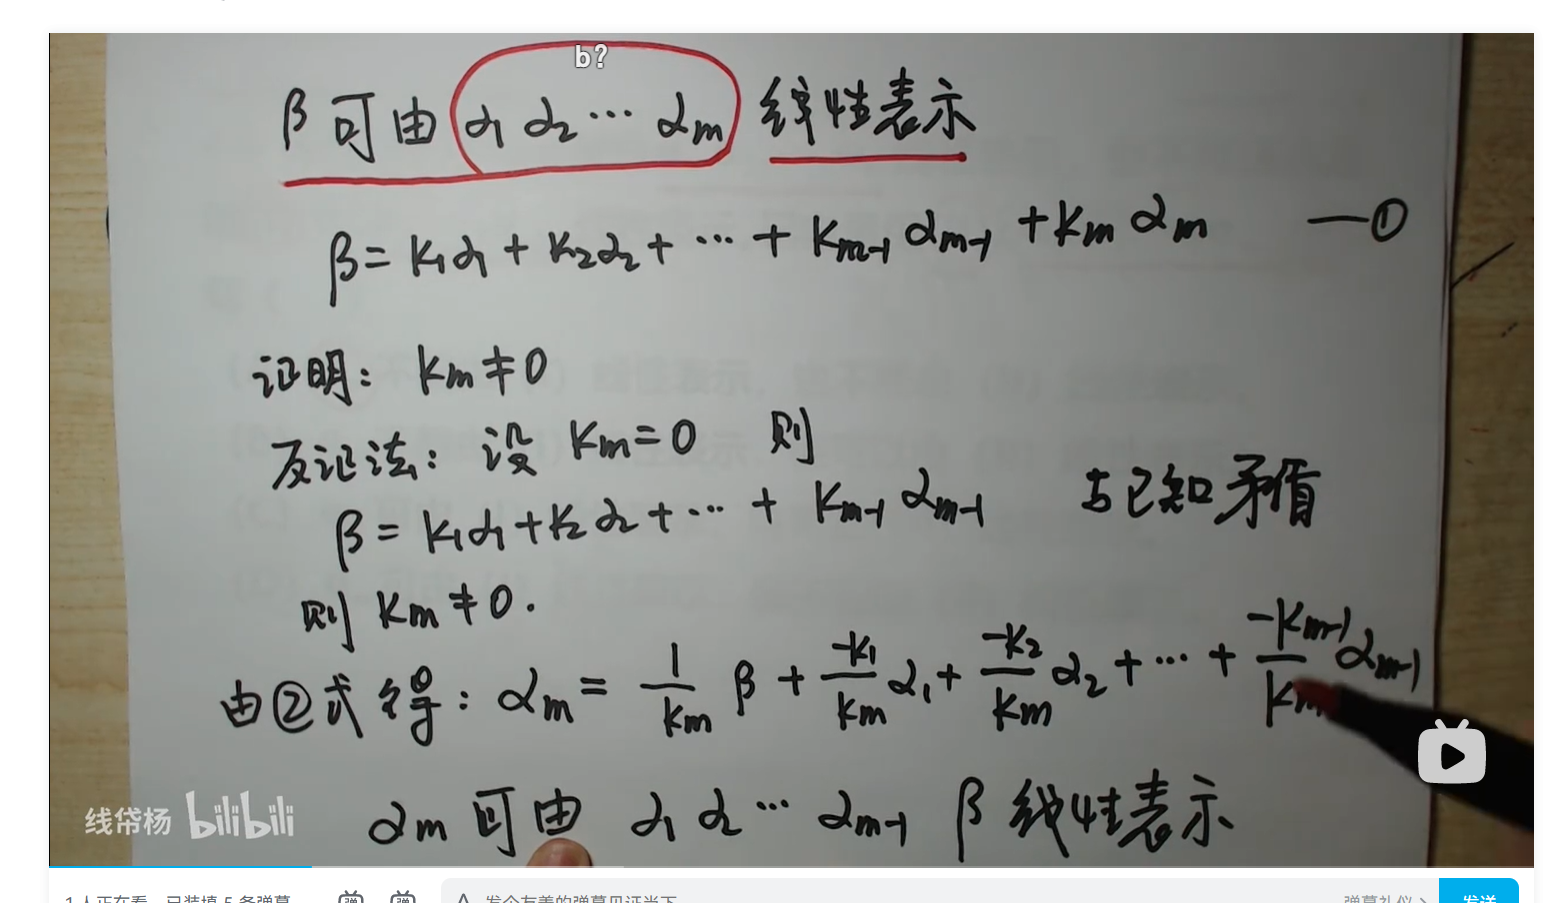 b?
β可由 α₁ α₂ ⋯ αₘ 线性表示
β = k₁α₁ + k₂α₂ + ⋯ + kₘ₋₁ αₘ₋₁ + kₘ αₘ —①
证明: kₘ ≠ 0
反证法: 设 kₘ = 0 则
β = k₁α₁ + k₂α₂ + ⋯ + kₘ₋₁ αₘ₋₁ 与已知矛盾
则 kₘ ≠ 0.
由②式得: αₘ = 1/kₘ β + -k₁/kₘ α₁ + -k₂/kₘ α₂ + ⋯ + -kₘ₋₁/kₘ αₘ₋₁
αₘ 可由 α₁ α₂ ⋯ αₘ₋₁ β 线性表示
线帒杨 bilibili
1人正在看
已装填 5 条弹幕
弹 弹
A 发个友善的弹幕见证当下
弹幕礼仪 >
发送